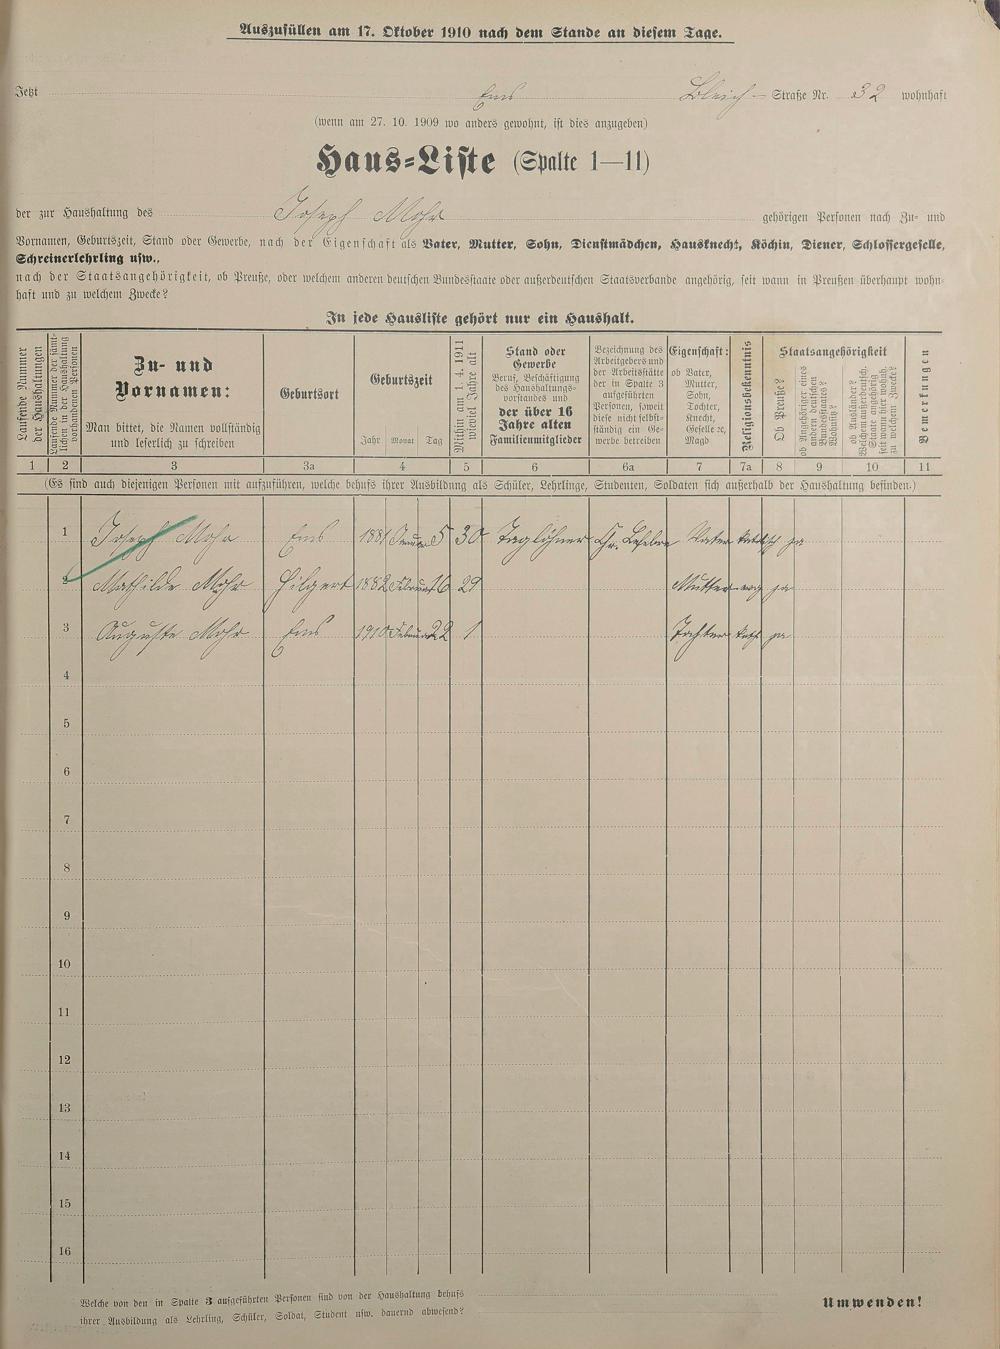 Auszufüllen am 17. Oktober 1910 nach dem Stande an diesem Tage.
Jetzt Ems Bleich- Straße Nr. 32 wohnhaft
(wenn am 27. 10. 1909 wo anders gewohnt, ist dies anzugeben)
Haus-Liste (Spalte 1—11)
der zur Haushaltung des Joseph Mohr gehörigen Personen nach Zu- und
Vornamen, Geburtszeit, Stand oder Gewerbe, nach der Eigenschaft als Vater, Mutter, Sohn, Dienstmädchen, Hausknecht, Köchin, Diener, Schlossergeselle,
Schreinerlehrling usw.,
nach der Staatsangehörigkeit, ob Preuße, oder welchem anderen deutschen Bundesstaate oder außerdeutschen Staatsverbande angehörig, seit wann in Preußen überhaupt wohn-
haft und zu welchem Zwecke?
In jede Hausliste gehört nur ein Haushalt.
Laufende Nummer
der Haushaltungen
Laufende Nummer der sämt-
lichen in der Haushaltung
vorhandenen Personen
Zu- und
Vornamen:
Man bittet, die Namen vollständig
und leserlich zu schreiben
Geburtsort
Geburtszeit
Jahr Monat Tag
Mithin am 1. 4. 1911
wieviel Jahre alt
Stand oder
Gewerbe
Beruf, Beschäftigung
des Haushaltungs-
vorstandes und
der über 16
Jahre alten
Familienmitglieder
Bezeichnung des
Arbeitgebers und
der Arbeitsstätte
der in Spalte 3
aufgeführten
Personen, soweit
diese nicht selbst-
ständig ein Ge-
werbe betreiben
Eigenschaft:
ob Vater,
Mutter,
Sohn,
Tochter,
Knecht,
Geselle ec,
Magd
Religionsbekenntnis
Staatsangehörigkeit
Ob Preuße?
ob Angehöriger eines
andern deutschen
Bundesstaates?
Wohnsitz?
ob Ausländer?
Welchem außerdeutsch.
Staate angehörig
seit wann hier wohnh.
zu welchem Zwecke?
Bemerkungen
1 2 3 3a 4 5 6 6a 7 7a 8 9 10 11
(Es sind auch diejenigen Personen mit aufzuführen, welche behufs ihrer Ausbildung als Schüler, Lehrlinge, Studenten, Soldaten sich außerhalb der Haushaltung befinden.)
1 Joseph Mohr Ems 1881 Januar 5 30 Taglöhner Vater ja
2 Mathilde Mohr Hilgert 1882 Februar 16 29 Mutter evg ja
3 Auguste Mohr Ems 1910 Februar 22 1 Tochter kath ja
4
5
6
7
8
9
10
11
12
13
14
15
16
Welche von den in Spalte 3 aufgeführten Personen sind von der Haushaltung behufs
ihrer Ausbildung als Lehrling, Schüler, Soldat, Student usw. dauernd abwesend?
Umwenden!